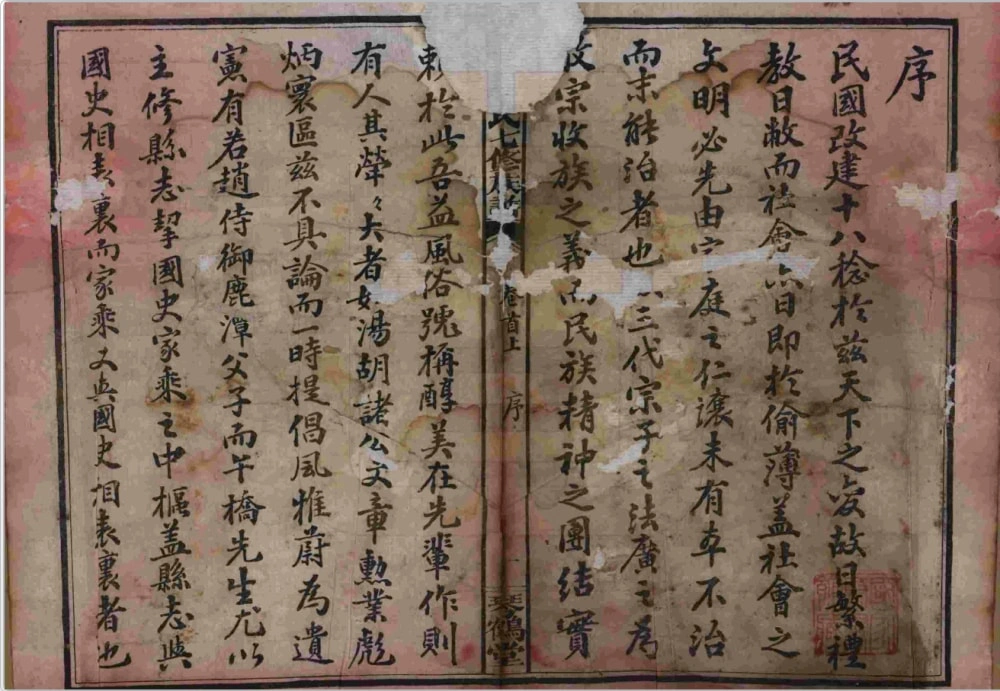 序
民國改建十八稔於兹天下之變故日繁禮
教日敝而社會亦日即於偷薄盖社會之
文明必先由家庭之仁讓未有本不治
而末能治者也 三代宗子之法廢之為
收宗收族之義而民族精神之團結實
氏七修族譜 卷首上 序 一 琴鶴堂
賴於此吾益風俗號稱醇美在先輩作則
有人其犖々大者如湯胡諸公文章勲業彪
炳寰區兹不具論而一時提倡風雅蔚為遺
憲有若趙侍御鹿潭父子而午橋先生尤以
主修縣志挈國史家乘之中樞盖縣志與
國史相表裏而家乘又與國史相表裏者也